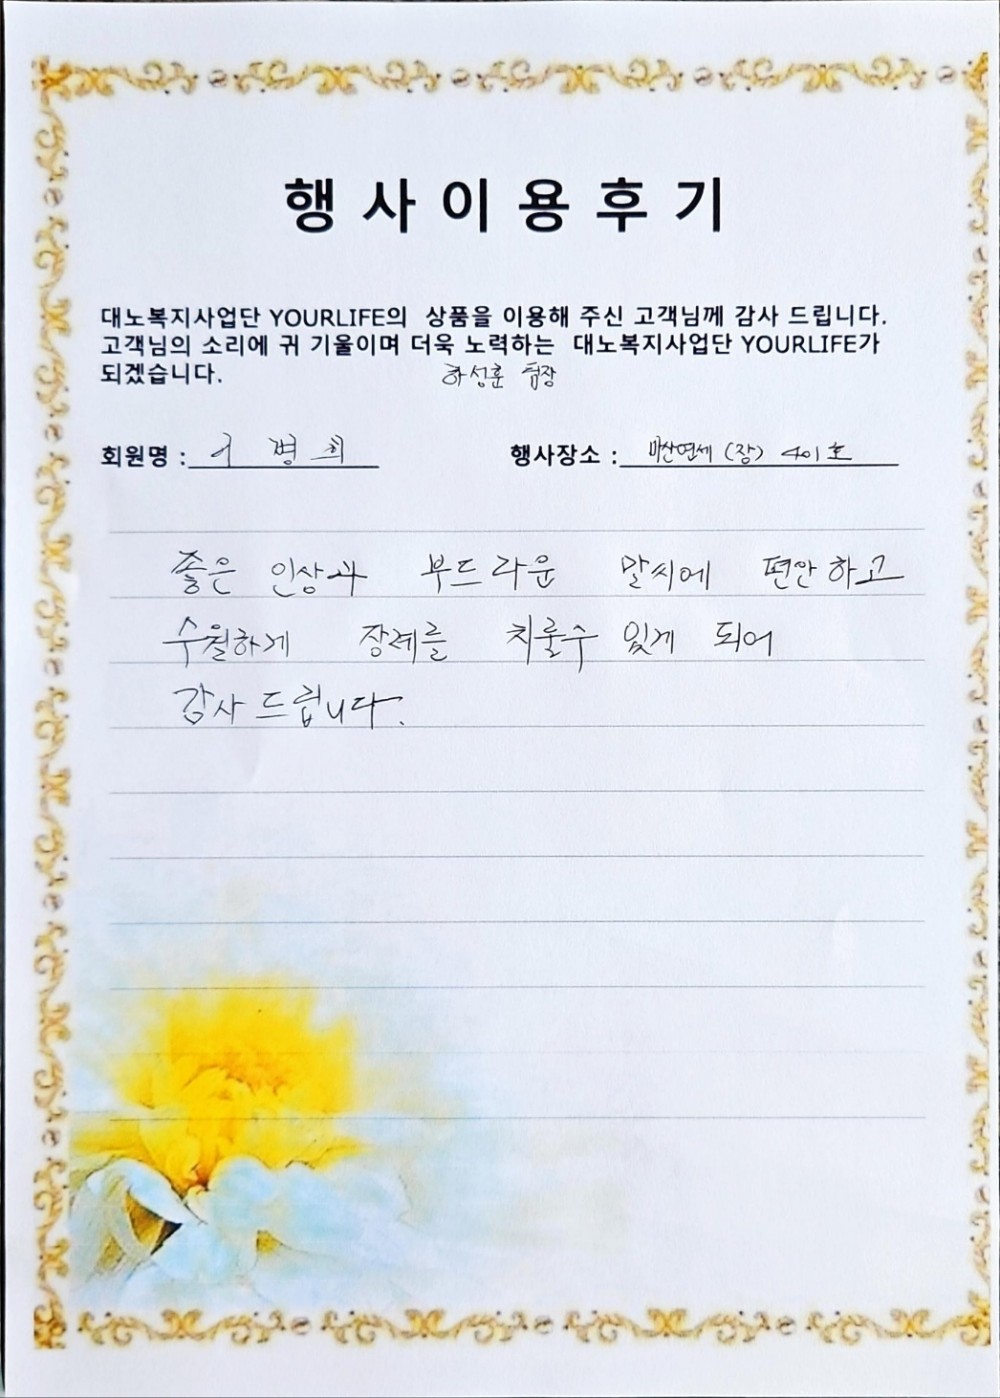 행사이용후기
대노복지사업단 YOURLIFE의 상품을 이용해 주신 고객님께 감사 드립니다.
고객님의 소리에 귀 기울이며 더욱 노력하는 대노복지사업단 YOURLIFE가
되겠습니다.
하성훈 팀장
회원명 : 병희 행사장소 : 마산연세 (장) 401호
좋은 인상과 부드라운 말씨에 편안하고
수월하게 장례를 치룰수 있게 되어
감사드립니다.